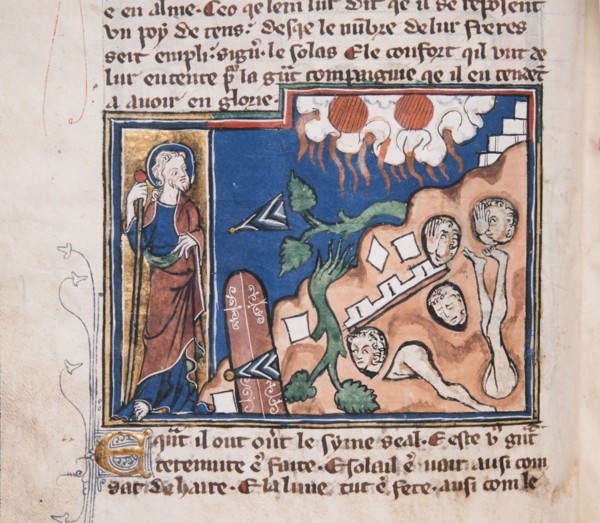 e en alme. Ceo qe lem lur dit qe il se reposent
vn poy de tens: desqe le nũbre de lur freres
seit empli: signẽ. le solas E le confort qil vnt de
lur entente p̃ la grãt compaignie qe il en tendẽt
a auoir en glorie.
E quãt il out ouẽt le syme seal. E este vꝰ grãt
teremute ẽ faite. E solail ẽ noir ausi com
sac de haire. E la lune tut ẽ fete. ausi com le